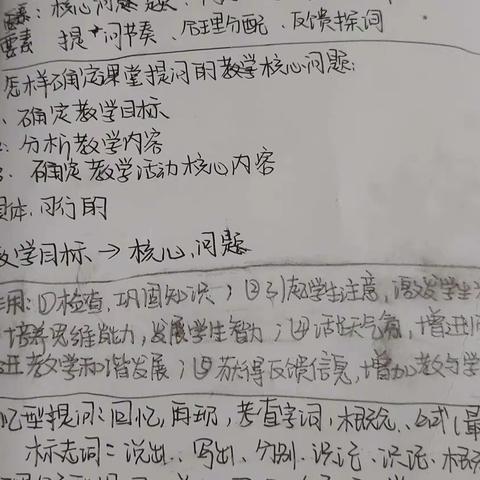 要素: 核心问题
要素 提问节奏、合理分配、反馈探询
怎样确定课堂提问的教学核心问题:
、确定教学目标
: 分析教学内容
、确定教学活动核心内容
具体、可行的
教学目标 → 核心问题
作用: ①检查、巩固知识; ②引起学生注意, 激发学生
培养思维能力, 发展学生智力; ④活跃气氛, 增进师
进教学和谐发展; ⑤获得反馈信息, 增加教与学
忆型提问: 回忆, 再现, 考查字词、概念、公式(最
标志词: 说出、写出、分别、